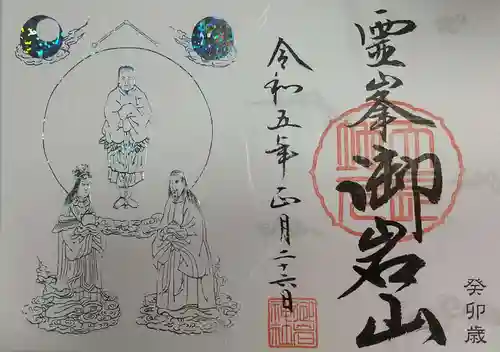 霊峯御岩山
癸卯歳
令和五年正月二十六日
御岩神社